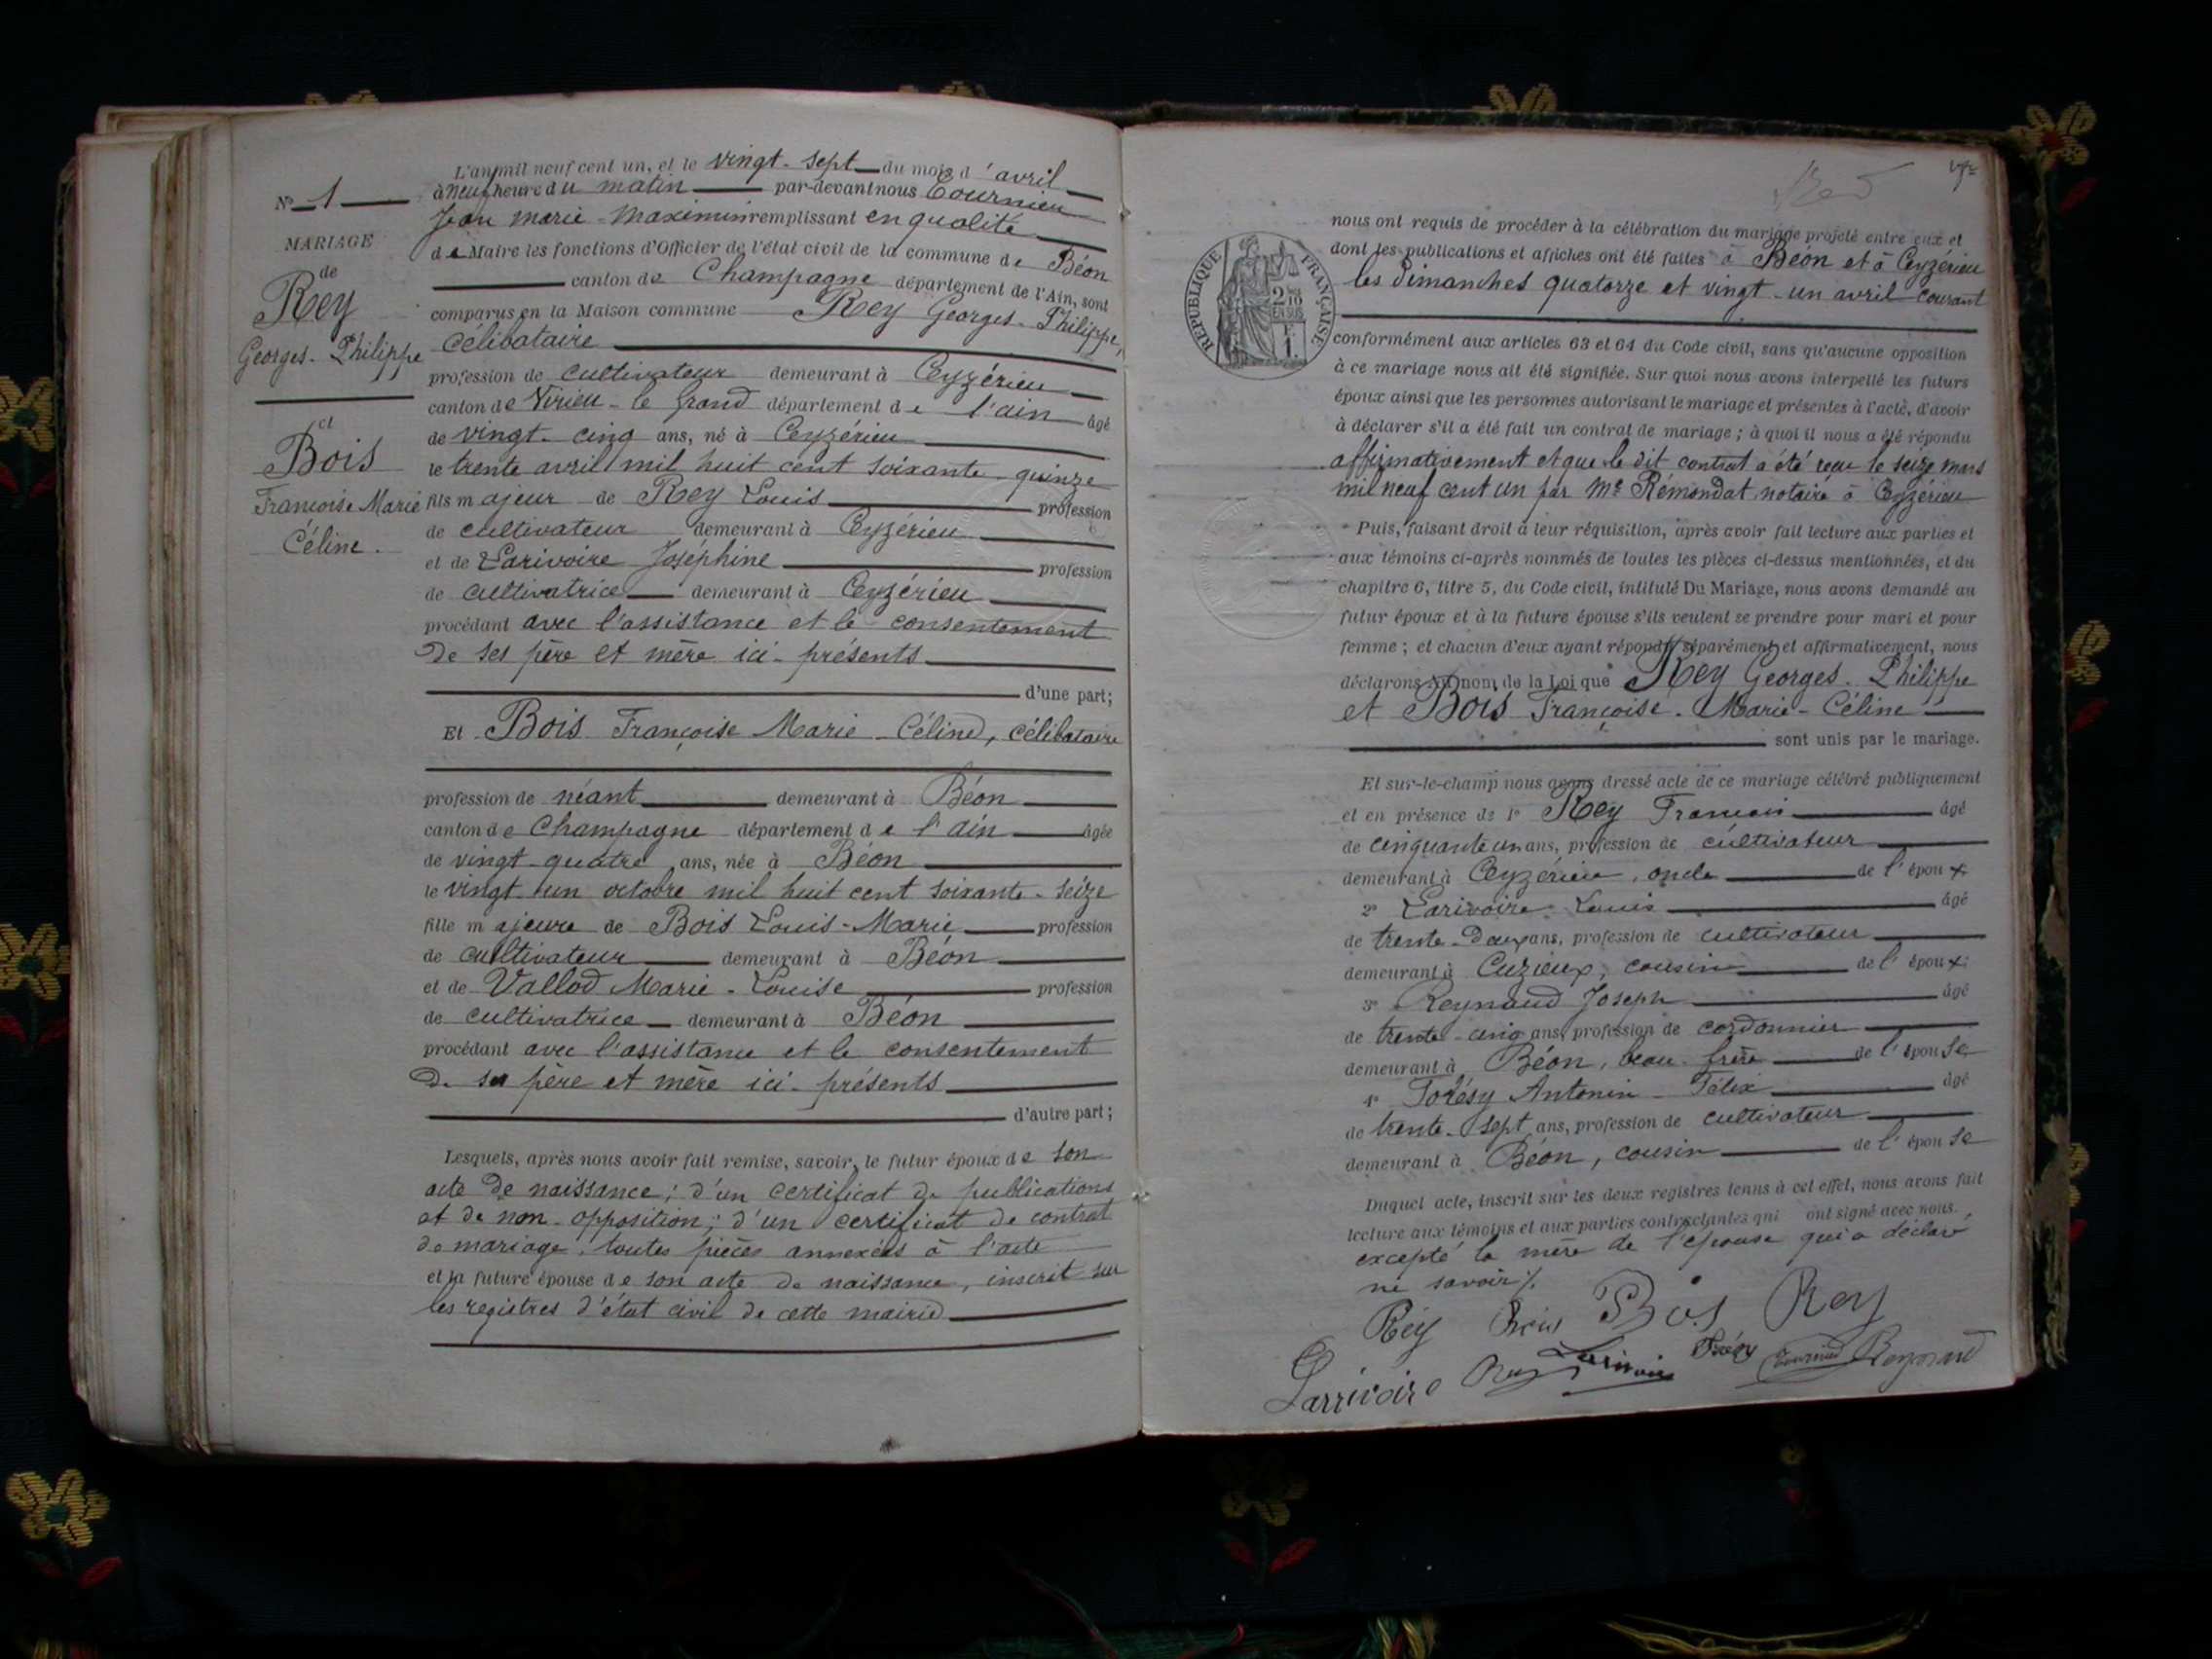 N° 1
MARIAGE
de
Rey
Georges-Philippe
et
Bois
Françoise Marie
Céline.
L'an mil neuf cent un, et le vingt-sept du mois d'avril
à neuf heure du matin par-devant nous Tournier
Jean marie-Maximin remplissant en qualité
de Maire les fonctions d'Officier de l'état civil de la commune de Béon
canton de Champagne département de l'Ain, sont
comparus en la Maison commune Rey Georges-Philippe,
célibataire
profession de cultivateur demeurant à Ceyzérieu
canton de Virieu-le grand département de l'ain âgé
de vingt-cinq ans, né à Ceyzérieu
le trente avril mil huit cent soixante-quinze
fils majeur de Rey Louis profession
de cultivateur demeurant à Ceyzérieu
et de Larivoire Joséphine profession
de cultivatrice demeurant à Ceyzérieu
procédant avec l'assistance et le consentement
de ses père et mère ici-présents
d'une part;
Et Bois Françoise Marie-Céline, célibataire
profession de néant demeurant à Béon
canton de Champagne département de l'ain âgée
de vingt-quatre ans, née à Béon
le vingt-un octobre mil huit cent soixante-seize
fille majeure de Bois Louis-Marie profession
de cultivateur demeurant à Béon
et de Vallod Marie-Louise profession
de cultivatrice demeurant à Béon
procédant avec l'assistance et le consentement
de père et mère ici-présents
d'autre part;
Lesquels, après nous avoir fait remise, savoir, le futur époux de son
acte de naissance; d'un certificat de publications
et de non-opposition; d'un certificat de contrat
de mariage; toutes pièces annexées à l'acte
et la future épouse de son acte de naissance, inscrit sur
les registres d'état civil de cette mairie
RÉPUBLIQUE FRANÇAISE
2/10
EN SUS
1 F.
nous ont requis de procéder à la célébration du mariage projeté entre eux et
dont les publications et affiches ont été faites à Béon et à Ceyzérieu
les dimanches quatorze et vingt-un avril courant
conformément aux articles 63 et 64 du Code civil, sans qu'aucune opposition
à ce mariage nous ait été signifiée. Sur quoi nous avons interpellé les futurs
époux ainsi que les personnes autorisant le mariage et présentes à l'acte, d'avoir
à déclarer s'il a été fait un contrat de mariage; à quoi il nous a été répondu
affirmativement et que le dit contrat a été reçu le seize mars
mil neuf cent un par Me Rémondat notaire à Ceyzérieu
Puis, faisant droit à leur réquisition, après avoir fait lecture aux parties et
aux témoins ci-après nommés de toutes les pièces ci-dessus mentionnées, et du
chapitre 6, titre 5, du Code civil, intitulé Du Mariage, nous avons demandé au
futur époux et à la future épouse s'ils veulent se prendre pour mari et pour
femme; et chacun d'eux ayant répondu séparément et affirmativement, nous
déclarons au nom de la Loi que Rey Georges-Philippe
et Bois Françoise-Marie-Céline
sont unis par le mariage.
Et sur-le-champ nous avons dressé acte de ce mariage célébré publiquement
et en présence de 1° Rey François âgé
de cinquante un ans, profession de cultivateur
demeurant à Ceyzérieu, oncle de l'époux
2° Larivoire Louis âgé
de trente-deux ans, profession de cultivateur
demeurant à Cuzieux, cousin de l'époux
3° Reynaud Joseph âgé
de trente-cinq ans, profession de cordonnier
demeurant à Béon, beau-frère de l'épouse
4° Antonin-Félix âgé
de trente-sept ans, profession de cultivateur
demeurant à Béon, cousin de l'épouse
Duquel acte, inscrit sur les deux registres tenus à cet effet, nous avons fait
lecture aux témoins et aux parties contractantes qui ont signé avec nous,
excepté la mère de l'épouse qui a déclaré
ne savoir
Rey Bois Bois Rey
Larrivoire Rey Larivoire Reynaud